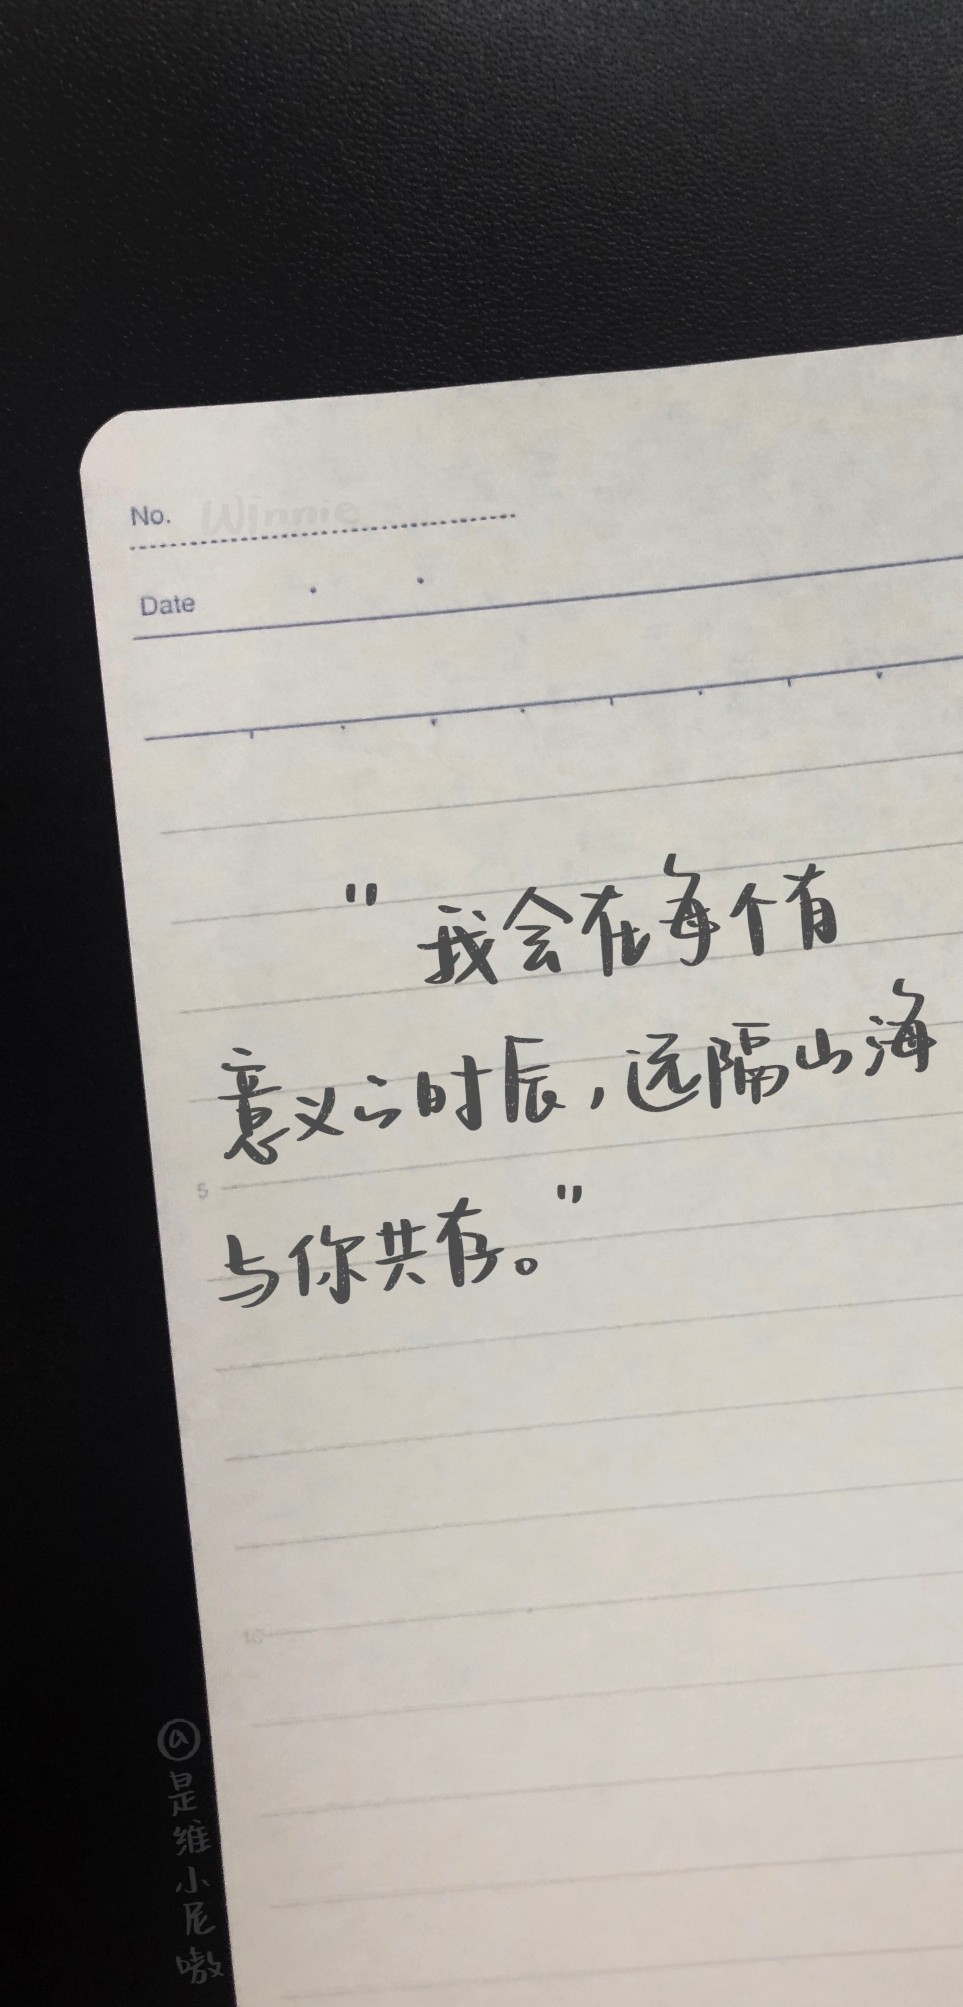 No. Winnie
Date
"我会在每个有
意义的时辰,远隔山海
与你共存。"
5
10
@是维小尼嗷